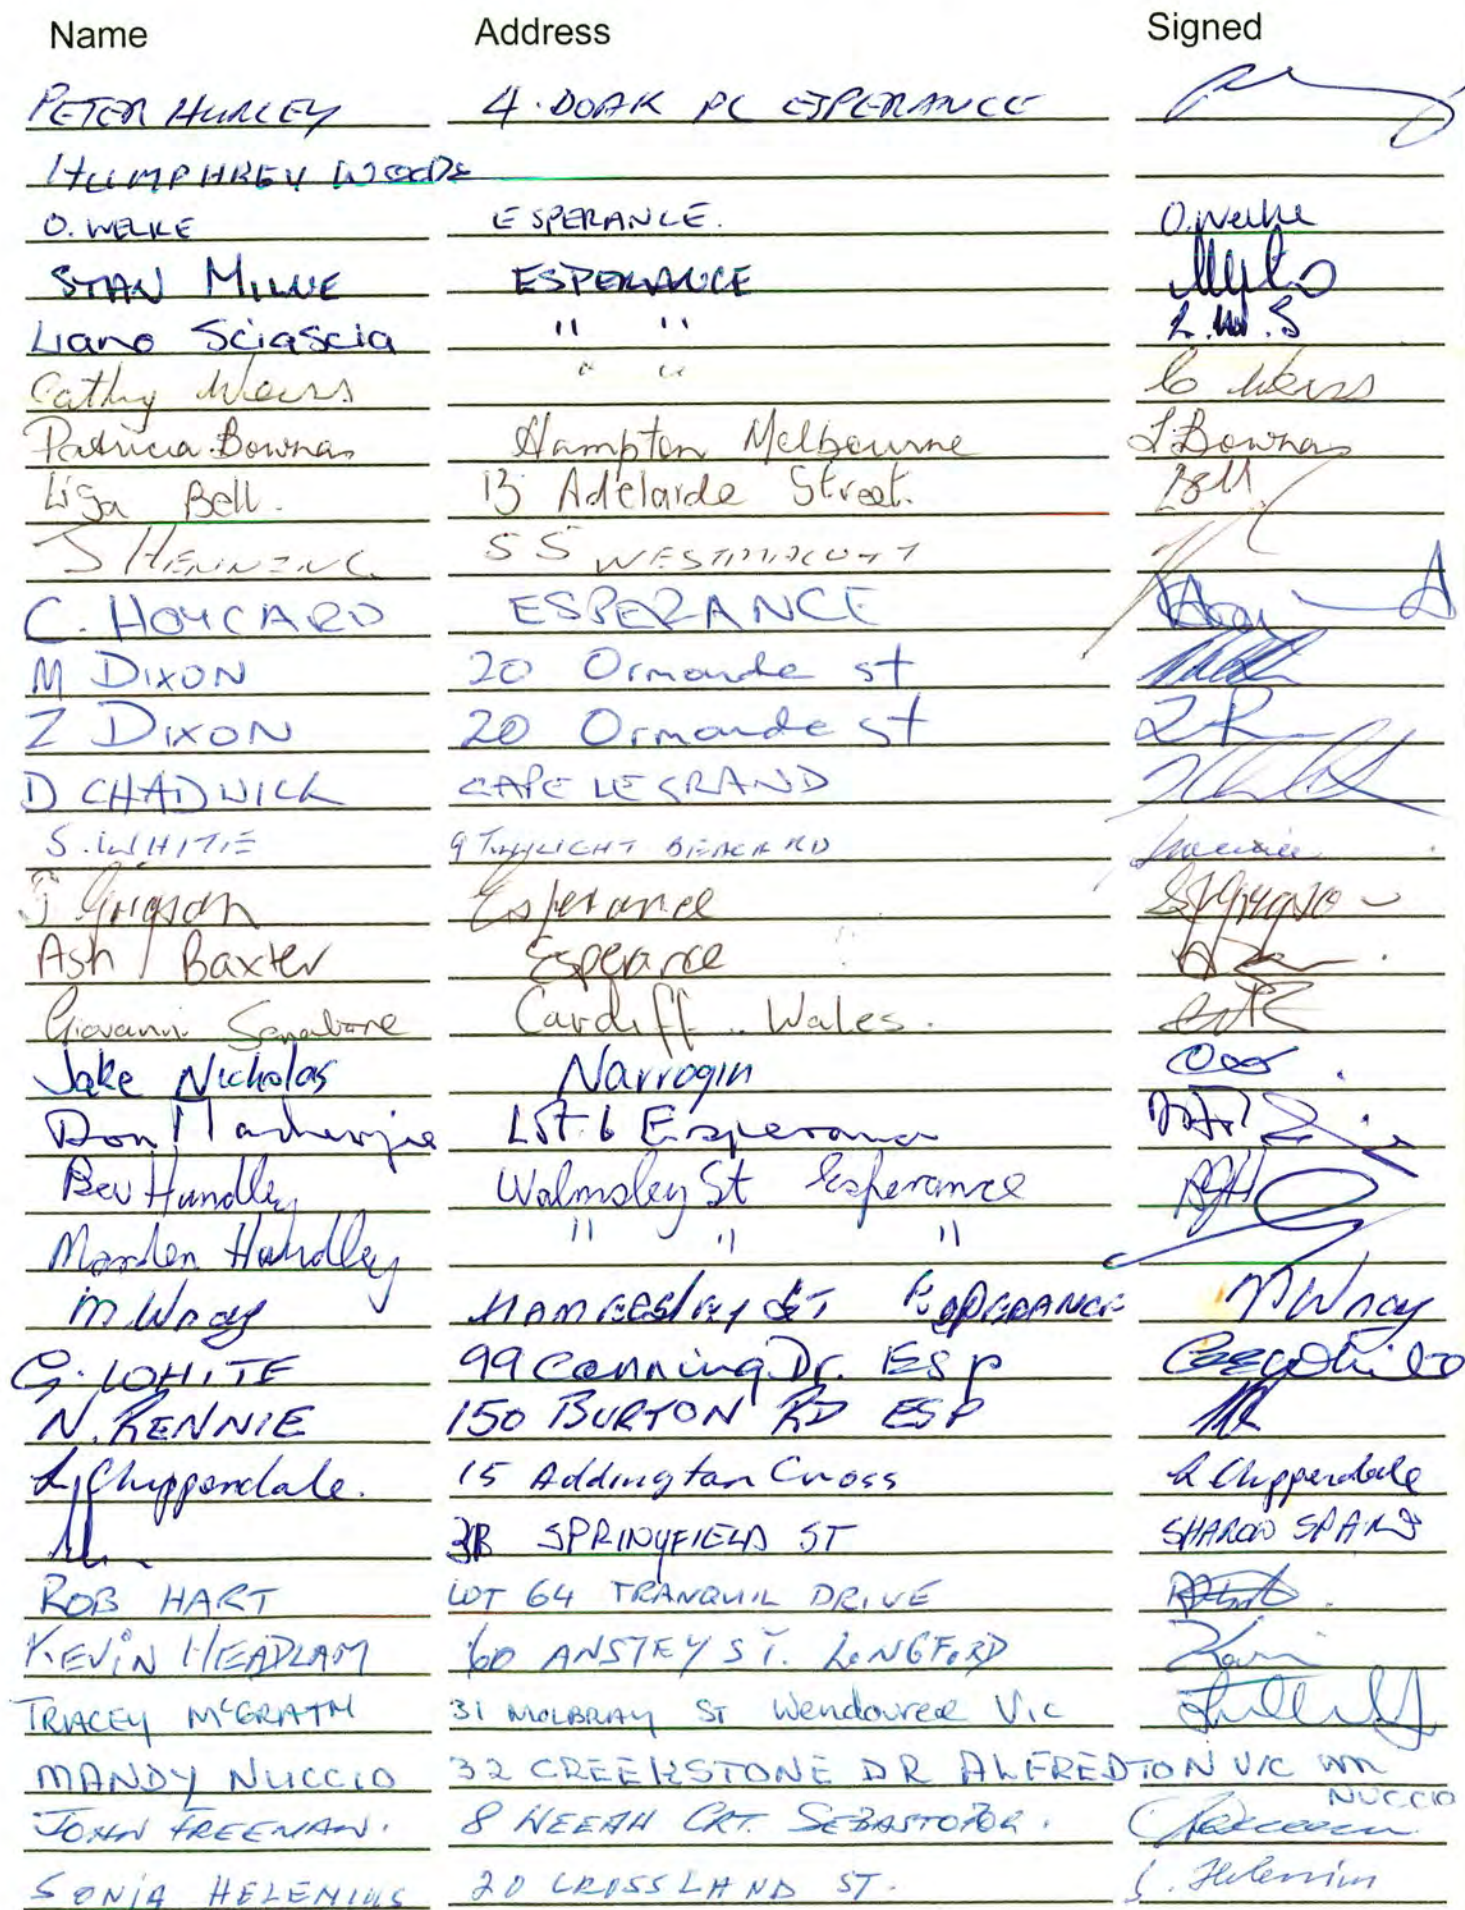 Name Address Signed
PETER HURLEY 4. DOAK PL ESPERANCE
HUMPHREY WOODS
O. WELKE ESPERANCE. O. Welke
STAN MILNE ESPERANCE
Liano Sciascia " " L.W.S
Cathy Weiss " " C Weiss
Patricia Bownas Hampton Melbourne P. Bownas
Lisa Bell. 13 Adelaide Street. Bell
J HENNING 55 WESTMACOTT
C. HOYCARD ESPERANCE
M DIXON 20 Ormonde st
Z DIXON 20 Ormonde st
D CHADWICK CAPE LE GRAND
S. WHITE 9 TWILIGHT BEACH RD
J Grigson Esperance
Ash Baxter Esperance
Giovanni Cardiff. Wales.
Jake Nicholas Narrogin
Don Mackenzie Lot 6 Esperance
Bev Hundley Walmsley St Esperance
Marden Hundley " " "
M Wray HAMERSLEY ST ESPERANCE M Wray
G. WHITE 99 Canning Dr. ESP
N. RENNIE 150 BURTON RD ESP
L Chippendale. 15 Addington Cross L Chippendale
3B SPRINGFIELD ST SHARON SPARKS
ROB HART LOT 64 TRANQUIL DRIVE
KEVIN HEADLAM 60 ANSTEY ST. LONGFORD Kevin
TRACEY McGRATH 31 MOLBRAY ST Wendouree Vic
MANDY NUCCIO 32 CREEKSTONE DR ALFREDTON VIC
NUCCIO
JOHN FREEMAN. 8 WEEAH CRT. SEBASTOPOL.
SONIA HELENIUS 20 CROSSLAND ST. S. Helenius